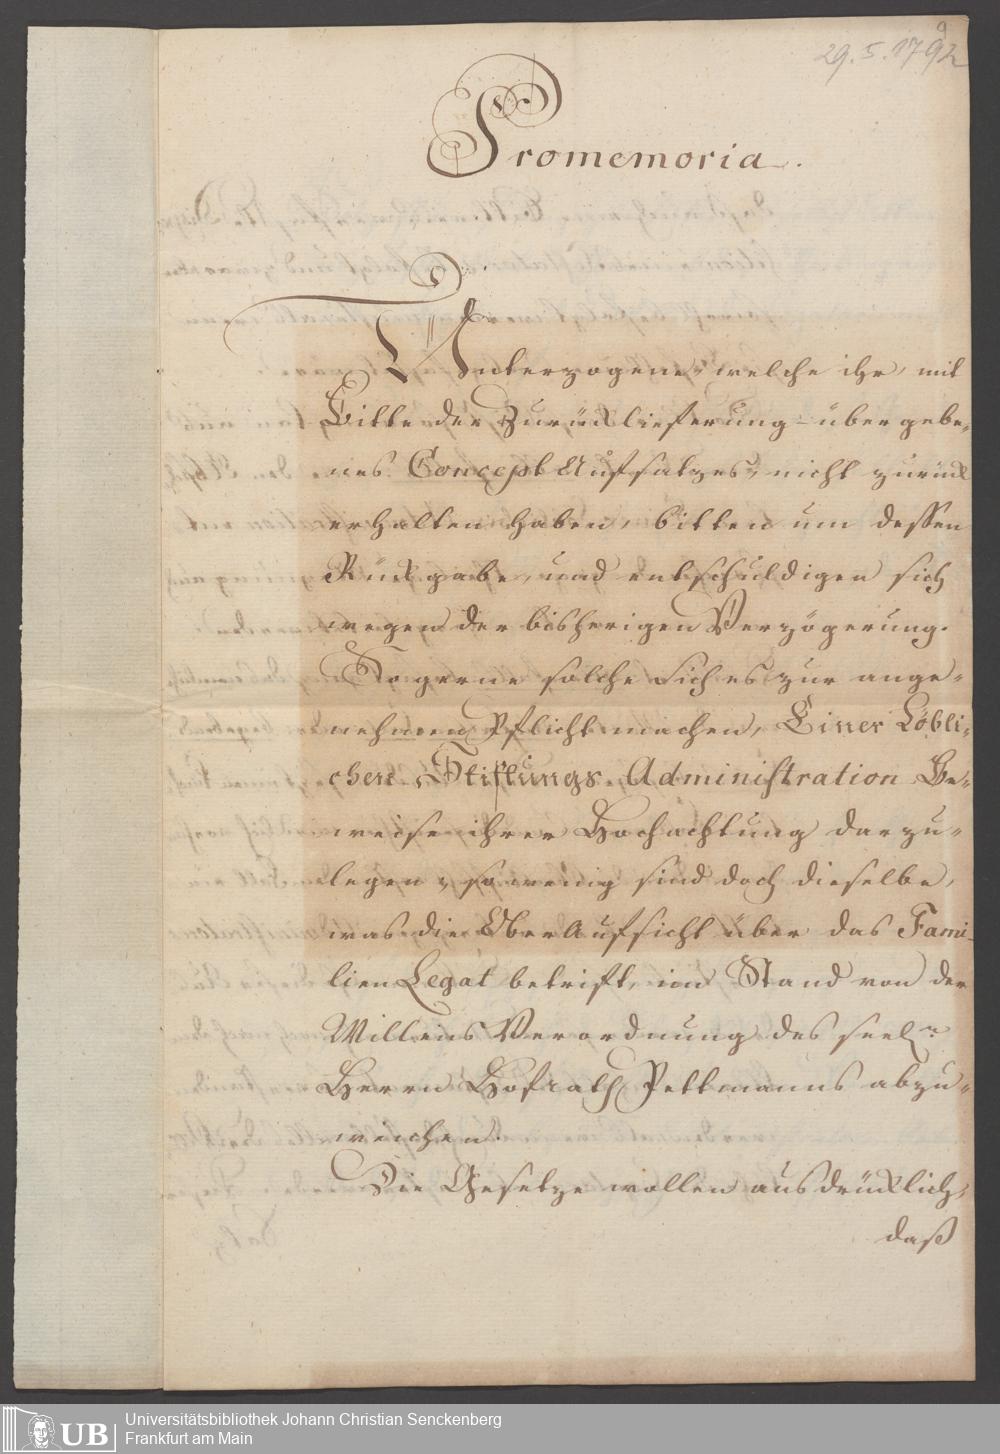 9
29.5.1792
Promemoria.
Unterzogene, welche ihr, mit
Bitte der Zurücklieferung - übergebe„
nes Concept Aufsatzes, nicht zurück
erhalten haben, bitten um dessen
Rückgabe, und entschuldigen sich
wegen der bisherigen Verzögerung.
So gerne solche sich es zur ange„
nehmen Pflicht machen, Einer Löbli„
chen Stiftungs Administration Be„
weise ihrer Hochachtung darzu„
legen, so wenig sind doch dieselbe,
was die Ober Aufsicht über das Fami„
lien Legat betrift, im Stand von der
Willens Verordnung des seeln
Herrn Hofrath Pettmanns abzu„
weichen.
Die Gesetze wollen ausdrücklich,
daß
UB
Universitätsbibliothek Johann Christian Senckenberg
Frankfurt am Main